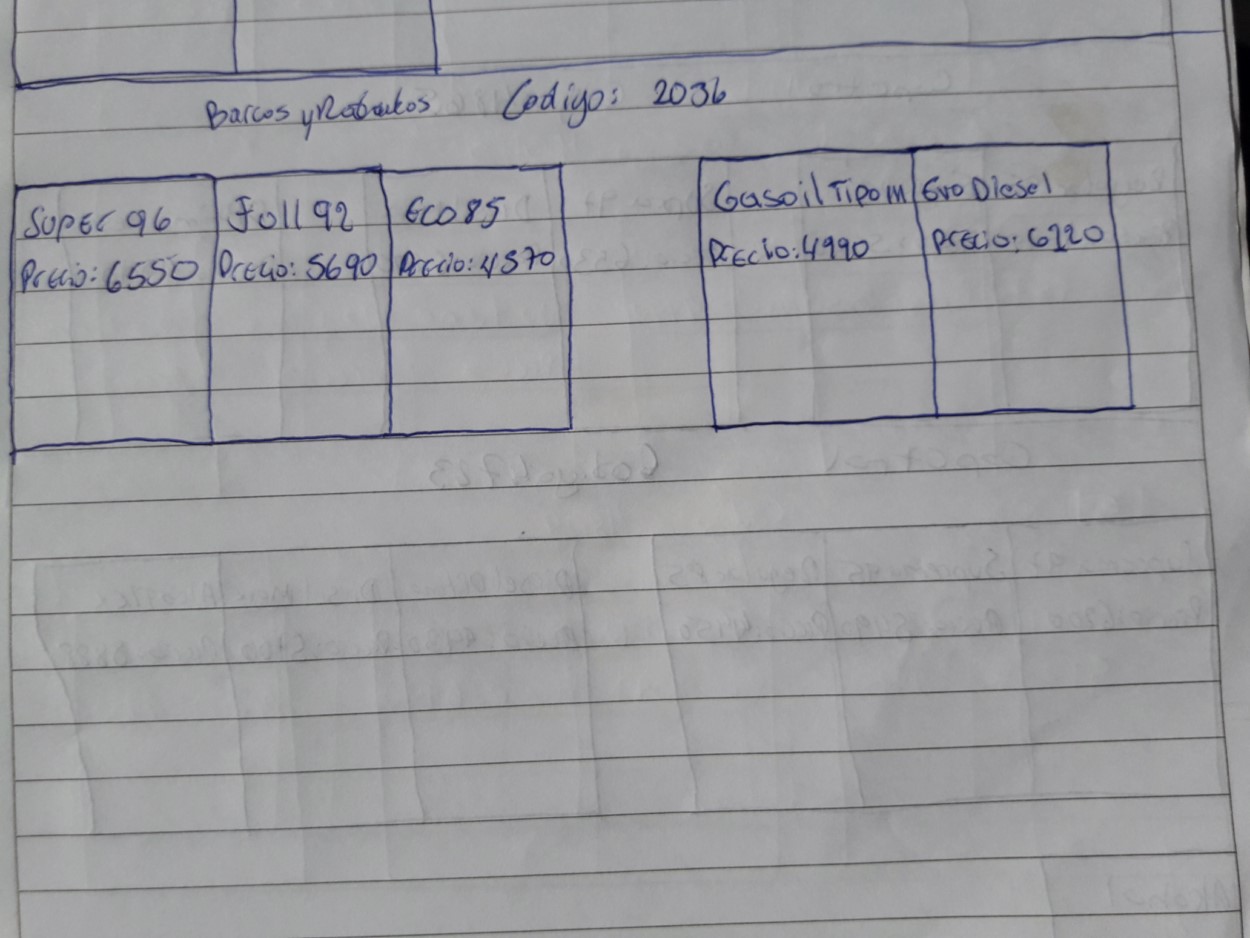 Barcos y Rodados Codigo: 2036
Super 96 Full 92 Eco 85 Gasoil Tipo III Evo Diesel
Precio: 6550 Precio: 5690 Precio: 4570 Precio: 4990 Precio: 6220